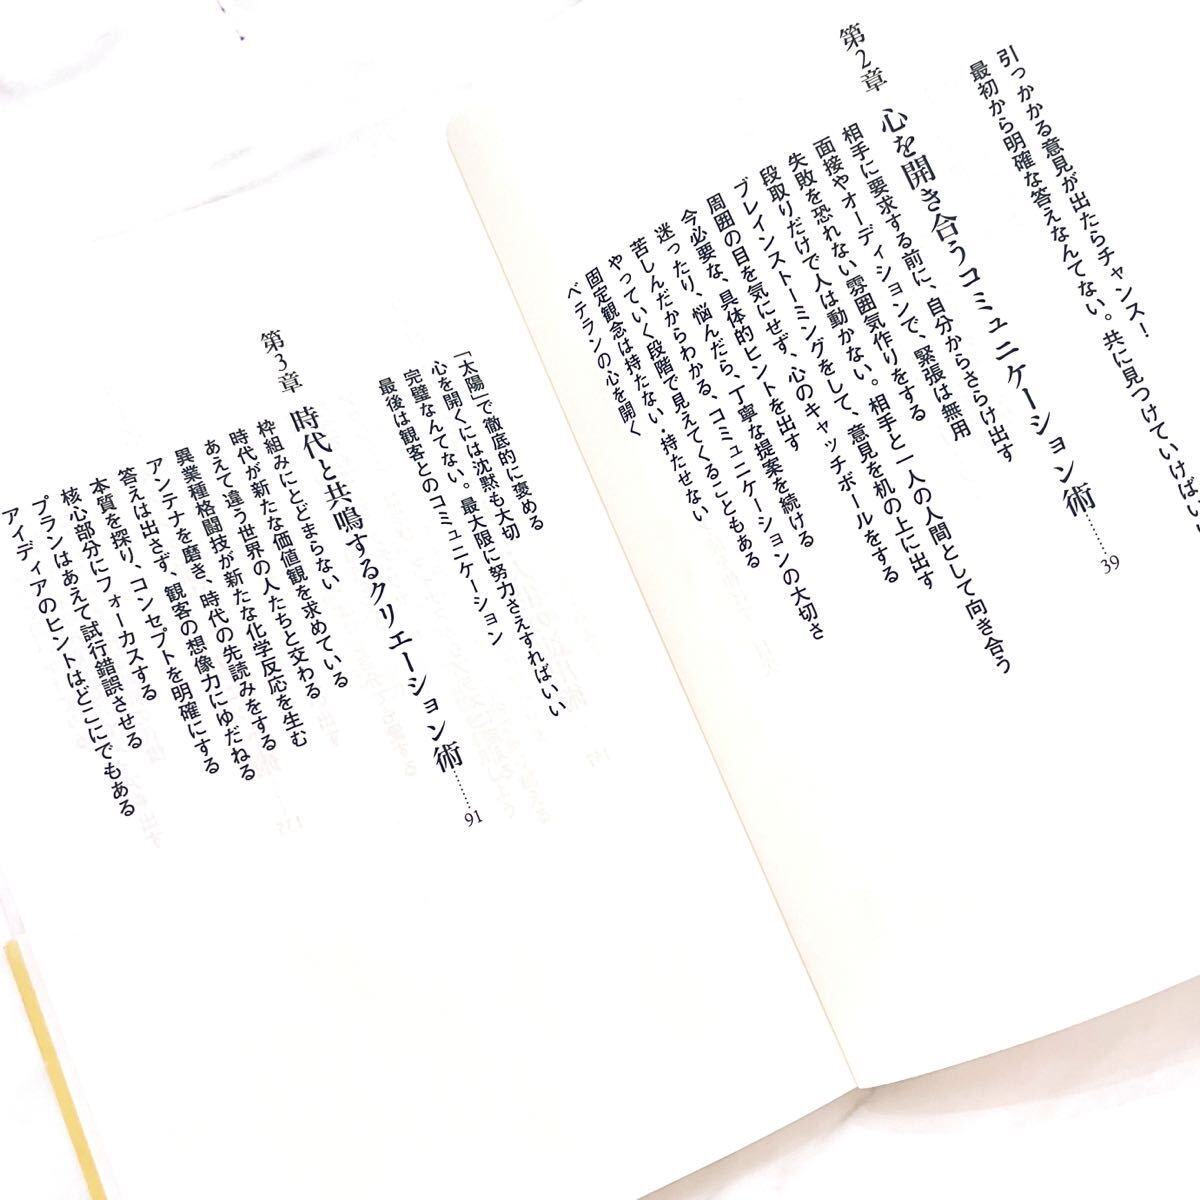 引っかかる意見が出たらチャンス！
最初から明確な答えなんてない。共に見つけていけばいい
第2章 心を開き合うコミュニケーション術………39
相手に要求する前に、自分からさらけ出す
面接やオーディションで、緊張は無用
失敗を恐れない雰囲気作りをする
段取りだけで人は動かない。相手と一人の人間として向き合う
ブレインストーミングをして、意見を机の上に出す
周囲の目を気にせず、心のキャッチボールをする
今必要な、具体的ヒントを出す
迷ったり、悩んだら、丁寧な提案を続ける
苦しんだからわかる、コミュニケーションの大切さ
やっていく段階で見えてくることもある
固定観念は持たない・持たせない
ベテランの心を開く
「太陽」で徹底的に褒める
心を開くには沈黙も大切
完璧なんてない。最大限に努力さえすればいい
最後は観客とのコミュニケーション
第3章 時代と共鳴するクリエーション術………91
枠組みにとどまらない
時代が新たな価値観を求めている
あえて違う世界の人たちと交わる
異業種格闘技が新たな化学反応を生む
アンテナを磨き、時代の先読みをする
答えは出さず、観客の想像力にゆだねる
本質を探り、コンセプトを明確にする
核心部分にフォーカスする
プランはあえて試行錯誤させる
アイディアのヒントはどこにでもある